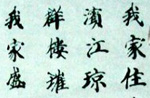 我家住
濱江琼
群楼璀
我家盛